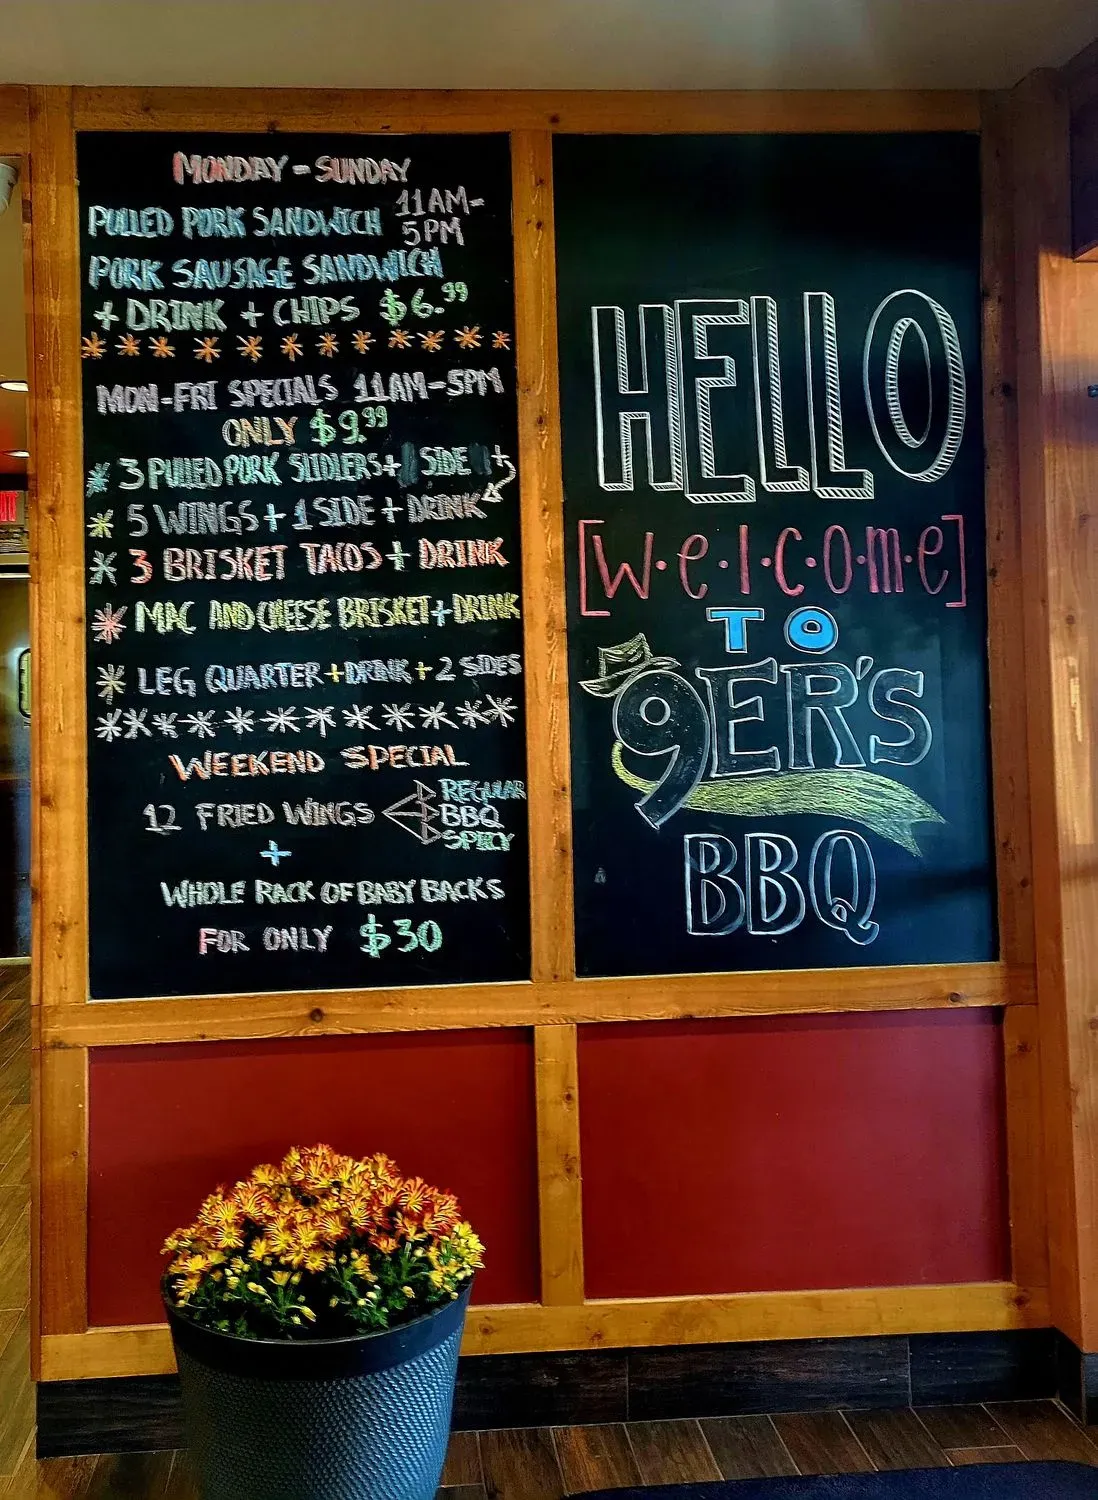 MONDAY - SUNDAY
PULLED PORK SANDWICH 11AM-
5PM
PORK SAUSAGE SANDWICH
+ DRINK + CHIPS $6.99
MON-FRI SPECIALS 11AM-5PM
ONLY $9.99
* 3 PULLED PORK SLIDLERS + SIDE +
* 5 WINGS + 1 SIDE + DRINK
* 3 BRISKET TACOS + DRINK
* MAC AND CHEESE BRISKET + DRINK
* LEG QUARTER + DRINK + 2 SIDES
WEEKEND SPECIAL
12 FRIED WINGS
REGULAR
BBQ
SPICY
+
WHOLE RACK OF BABY BACKS
FOR ONLY $30
HELLO
[w·e·l·c·o·m·e]
TO
9ER'S
BBQ